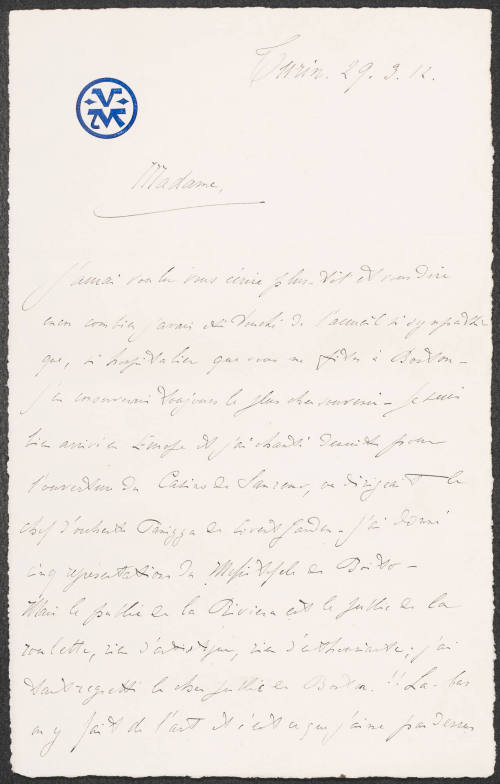 VM
Turin. 29. 3. 12.
Madame,
J'aurai voulu vous écrire plus tôt et vous dire
encor combien j'avais été touché de l'accueil si sympathi
que, si hospitalier que vous me fîtes à Boston –
j'en conserverai toujours le plus cher souvenir – Je suis
bien arrivé en Europe et j'ai chanté de suite pour
l'ouverture du Casino de Sanremo, où dirigeait le
chef d'orchestre Panizza de Covent Garden – j'ai donné
cinq représentations du Mefistofele de Boito –
Mais le public de la Riviera est le public de la
roulette, rien d'artistique, rien d'enthousiaste; j'ai
tant regretté le cher public de Boston. !! Là-bas
on y fait de l'art et c'est ce que j'aime par dessus